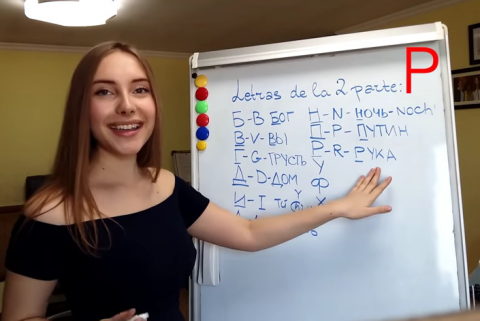 P
Letras de la 2 parte:
Б-B БОГ Н-N-НОЧЬ-Noch'
В-V-ВЫ П-P-ПУТИН
Г-G-ГРУСТЬ Р-R-РУКА
У
Д-D-ДОМ Ф
И-I Х